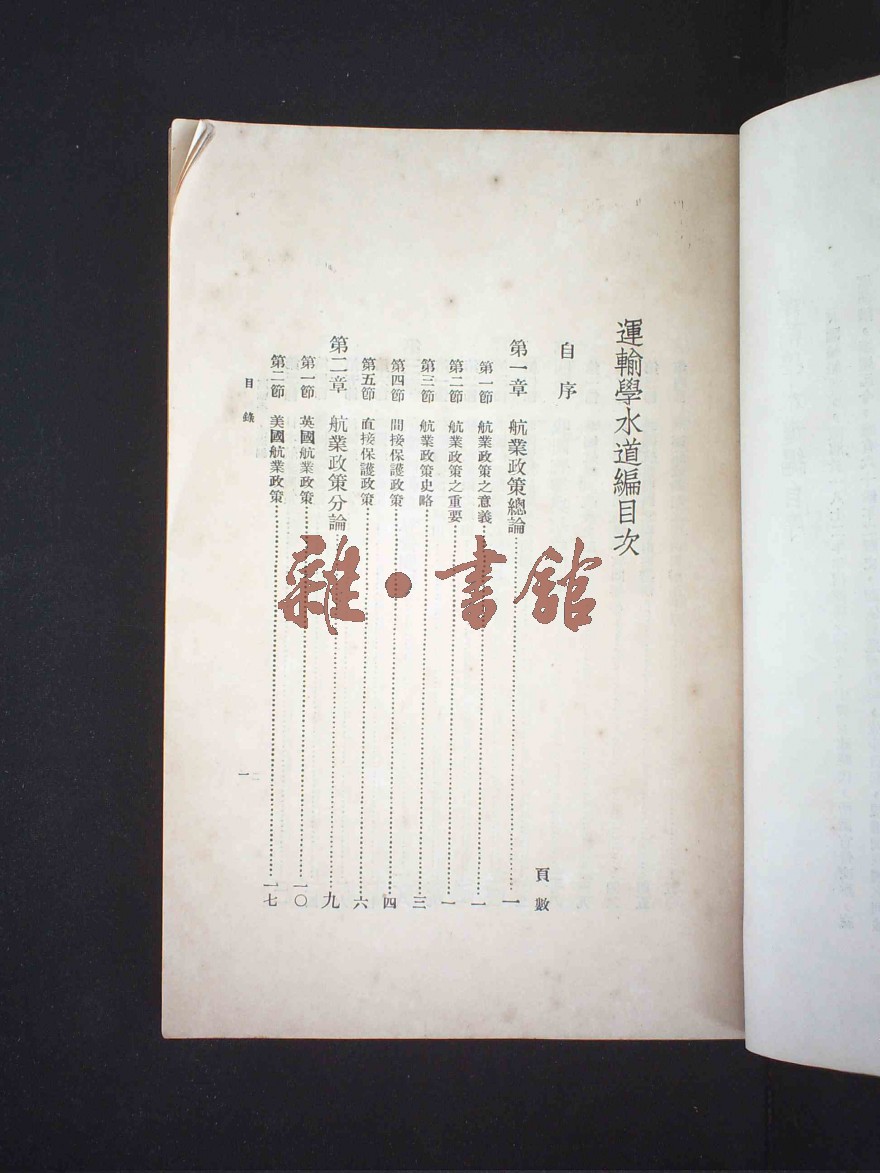 運輸學水道編目次
自序
頁數
第一章 航業政策總論……一
第一節 航業政策之意義……一
第二節 航業政策之重要……一
第三節 航業政策史略……三
第四節 間接保護政策……四
第五節 直接保護政策……六
第二章 航業政策分論……九
第一節 英國航業政策……一〇
第二節 美國航業政策……一七
目錄 一
雜·書館